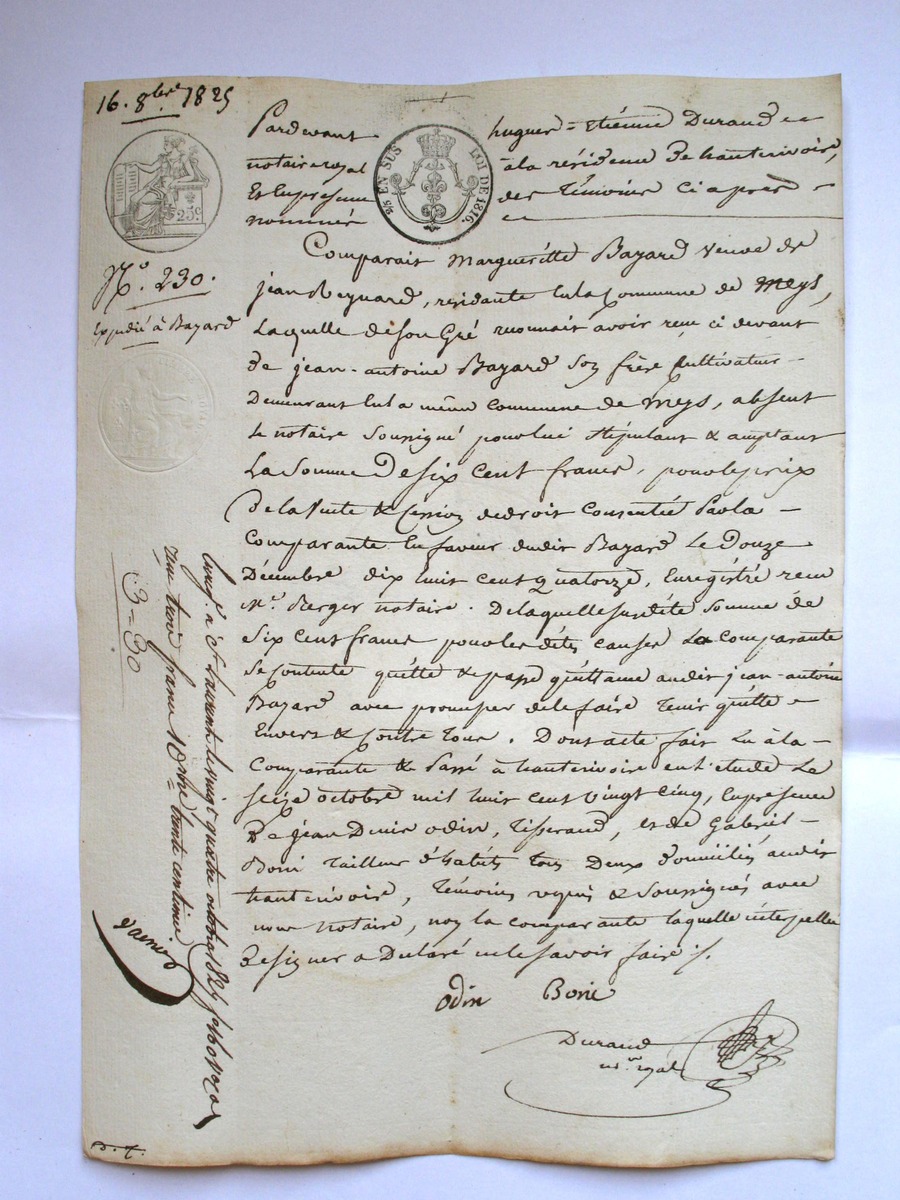 16. 8bre. 1825
25c.
2/5 EN SUS LOI DE 1816.
Pardevant hugues = etiénne Durand
notaire royal à la résidence de hauterivoire,
Et En presence des Témoins ci après
nommés
N.o 230.
Expedié à Bazard
Comparait Margueritte Bazard veuve de
jean Reynard, residante En la Commune de Meys,
Laquelle de son Gré reconnait avoir reçu ci devant
de jean-antoine Bazard son frère Cultivateur
Demeurant En la même commune de Meys, absent
le notaire soussigné pour lui stipulant & acceptant
La somme De six cent francs, pour le prix
De la vente & Cession de droit consentie Par la
Comparante En faveur dudit Bazard Le Douze
Décembre dix huit cent Quatorze, Enregistré reçu
M.e Berger notaire. De laquelle susdite somme de
six cent francs pour les dites causes La Comparante
se contente quitte & passe quittance audit jean-antoine
Bazard avec promesse de le faire Tenir quitte
Envers & Contre Tous. Dont acte fait Lu à la
Comparante & Passé à hauterivoire en L'étude Le
seize octobre mil huit cent vingt cinq, En présence
De jean Denis odin, Tisserand, et de Gabriel
Boni Tailleur d'habits Tous Deux domiciliés audit
hauterivoire, Témoins requis & soussignés avec
nous notaire, non la comparante laquelle interpellée
De signer a Déclaré ne le savoir faire ./.
odin Boni
Durand
n.re royal
Enregé. à St Laurent le vingt quatre octobre 1825 fo 160
reçu trois francs 10me trente centimes.
3=30